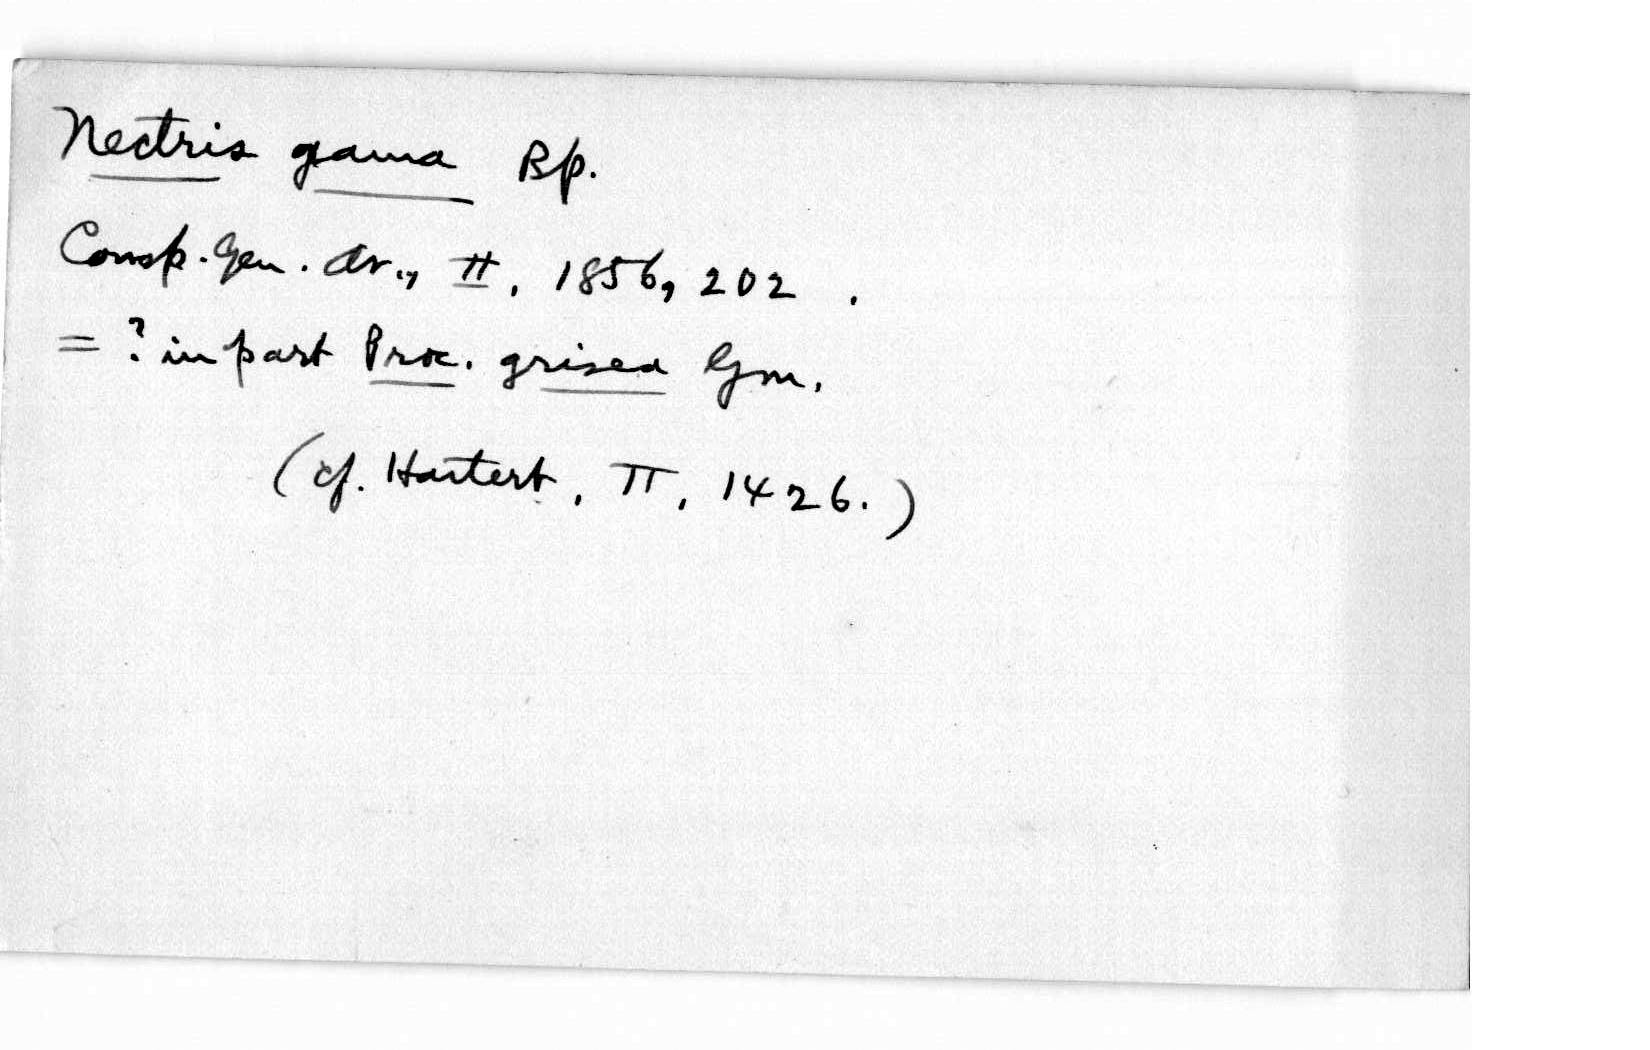 Nectris gama Bp.
Consp. Gen. Av., II, 1856, 202.
= ? in part Proc. grisea Gm.
(cf. Hartert, II, 1426.)